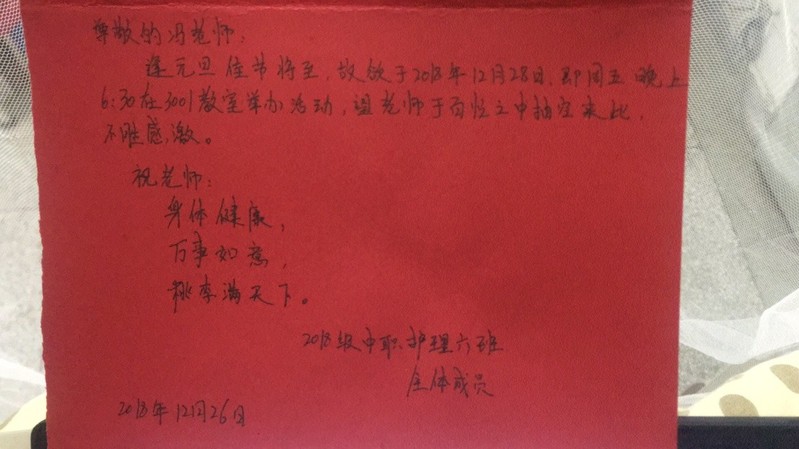 尊敬的冯老师:
逢元旦佳节将至,故欲于2018年12月28日,即周五晚上
6:30在3001教室举办活动,望老师于百忙之中抽空来此,
不胜感激。
祝老师:
身体健康,
万事如意,
桃李满天下。
2018级中职护理六班
全体成员
2018年12月26日